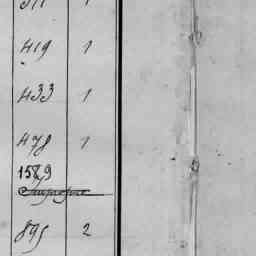 419 1
433 1
478 1
1589
895 2